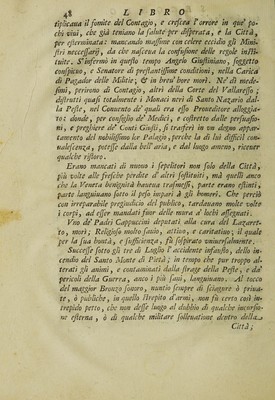 48 LIBRO
tiplicava il fomite del Contagio, e cresceva l'orrore in que' po-
chi vivi, che già teneano la salute per disperata, e la Città,
per esterminata: mancando massime con celere eccidio gli Mini-
stri necessarij, da che nasceva la confusione delle regole insti-
tuite. S'infermò in questo tempo Angelo Giustiniano, soggetto
conspicuo, e Senatore di prestantissime conditioni, nella Carica
di Pagador delle Militie, & in breu' hore morì. Ne' dì mede-
simi, perirono di Contagio, altri della Corte del Vallaresso;
distrutti quasi totalmente i Monaci neri di Santo Nazario dal-
la Peste, nel Convento de' quali era esso Proveditore alloggia-
to: donde, per consiglio de' Medici, e costretto dalle persuasio-
ni, e preghiere de' Conti Giusti, si trasferì in un degno appar-
tamento del nobilissimo lor Palagio; perche la di lui difficil con-
valescenza, potesse dalla bell'aria, e dal luogo ameno, ricever
qualche ristoro.
Erano mancati di nuovo i sepelitori non solo della Città,
più volte alle fresche perdite d'altri sostituiti, mà quelli anco
che la Veneta benignità haveva trasmessi, parte erano estinti,
parte languivano sotto il peso impari à gli homeri. Che perciò
con irreparabile pregiudicio del publico, tardavano molte volte
i corpi, ad esser mandati fuor delle mura a' lochi assegnati.
Vno de' Padri Cappuccini deputati alla cura del Lazaret-
to, morì; Religioso molto santo, attivo, e caritativo; il quale
per la sua bontà, e sufficienza, fù sospirato universalmente.
Successe sotto gli tre di Luglio l'accidente infausto, dello in-
cendio del Santo Monte di Pietà; in tempo che pur troppo al-
terati gli animi, e contaminati dalla strage della Peste, e da'
pericoli della Guerra, anco i più sani, languivano. Al tocco
del maggior Bronzo sonoro, nuntio sempre di sciagure ò priva-
te, ò publiche, in quello strepito d'armi, non fù certo così in-
trepido petto, che non desse luogo al dubbio di qualche incursio-
ne esterna, ò di qualche militar sollevatione dentro della
Città;